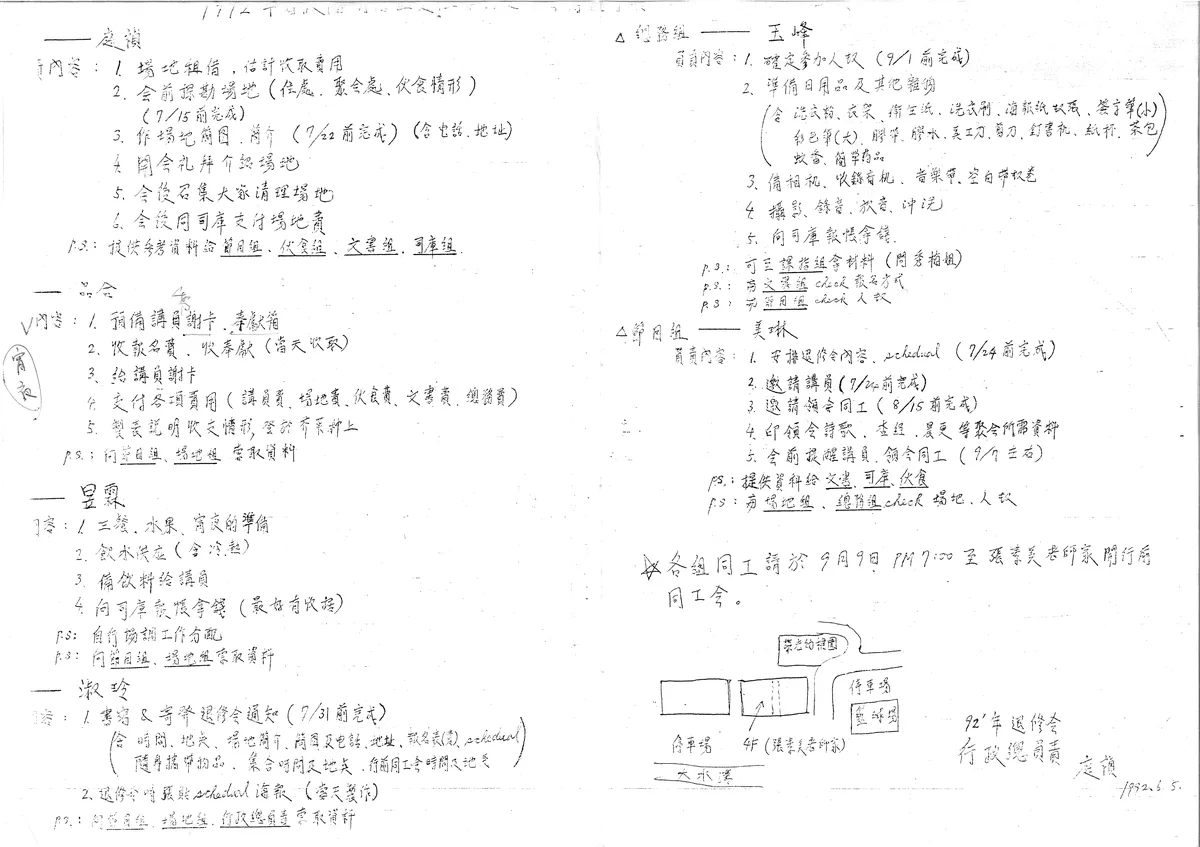 —— 庭禎
內容：1. 場地租借，估計收取費用
2. 会前探勘場地（住處、聚会處、伙食情形）
（7/15前完成）
3. 作場地簡图、簡介（7/22前完成）（含电話、地址）
4. 開会礼拜介紹場地
5. 会後召集大家清理場地
6. 会後同司庫支付場地費
p.s.：提供参考資料給節目組、伙食組、文書組、司庫組.
—— 品含
內容：1. 預備講員謝卡、奉献箱
宵夜
2. 收報名費、收奉献（當天收取）
3. 給講員謝卡
4. 交付各項費用（講員費、場地費、伙食費、文書費、總務費）
5. 製表説明收支情形,
p.s.：向節目組、場地組 索取資料
—— 昱霖
內容：1. 三餐、水果、宵夜的準備
2. 飲水供应（含冷.熱）
3. 備飲料給講員
4. 向司庫報帳拿錢（最好有收据）
p.s：自行協調工作分配
p.s：向節目組、場地組索取資料
—— 淑玲
內容：1. 書寫 & 寄發退修会通知（7/31前完成）
（含 時間、地点、場地簡介、簡图及电話、地址、報名表(卷)、schedual
隨身攜帶物品、集合時間及地点、行前同工会時間及地点）
2. 退修会時張貼schedual海報（當天製作）
p.s.：向節目組、場地組、行政總負責 索取資料
△ 總務組 —— 玉峰
負責內容：1. 確定参加人数（9/1前完成）
2. 準備日用品及其他雜物
（含 洗衣粉、衣架、衛生紙、洗衣刷、海報紙数張、簽字筆(小)
彩色筆(大)、膠帶、膠水、美工刀、剪刀、釘書机、紙杯、茶包
蚊香、簡單药品）
3. 備相机、收錄音机、音樂帶、空白帶数卷
4. 攝影、錄音、放音、沖洗
5. 向司庫報帳拿錢.
p.s.：可至課指組拿材料（問秀梅姐）
p.s.：与文書組check報名方式
p.s：与節目組check人数
△ 節目組 —— 美琳
負責內容：1. 安排退修会內容、schedual（7/24前完成）
2. 邀請講員（7/24前完成）
3. 邀請領会同工（8/15前完成）
4. 印領会詩歌、查經、晨更等聚会所需資料
5. 会前提醒講員、領会同工（9/7左右）
p.s.：提供資料給文書、司庫、伙食
p.s：与場地組、總務組check場地、人数
☆各組同工請於9月9日 PM7:00至張素美老師家開行前
同工会。
榮光幼稚園
停車場
籃球場
停車場 4F（張素美老師家）
大水溝
92'年退修会
行政總負責 庭禎
1992.6.5.